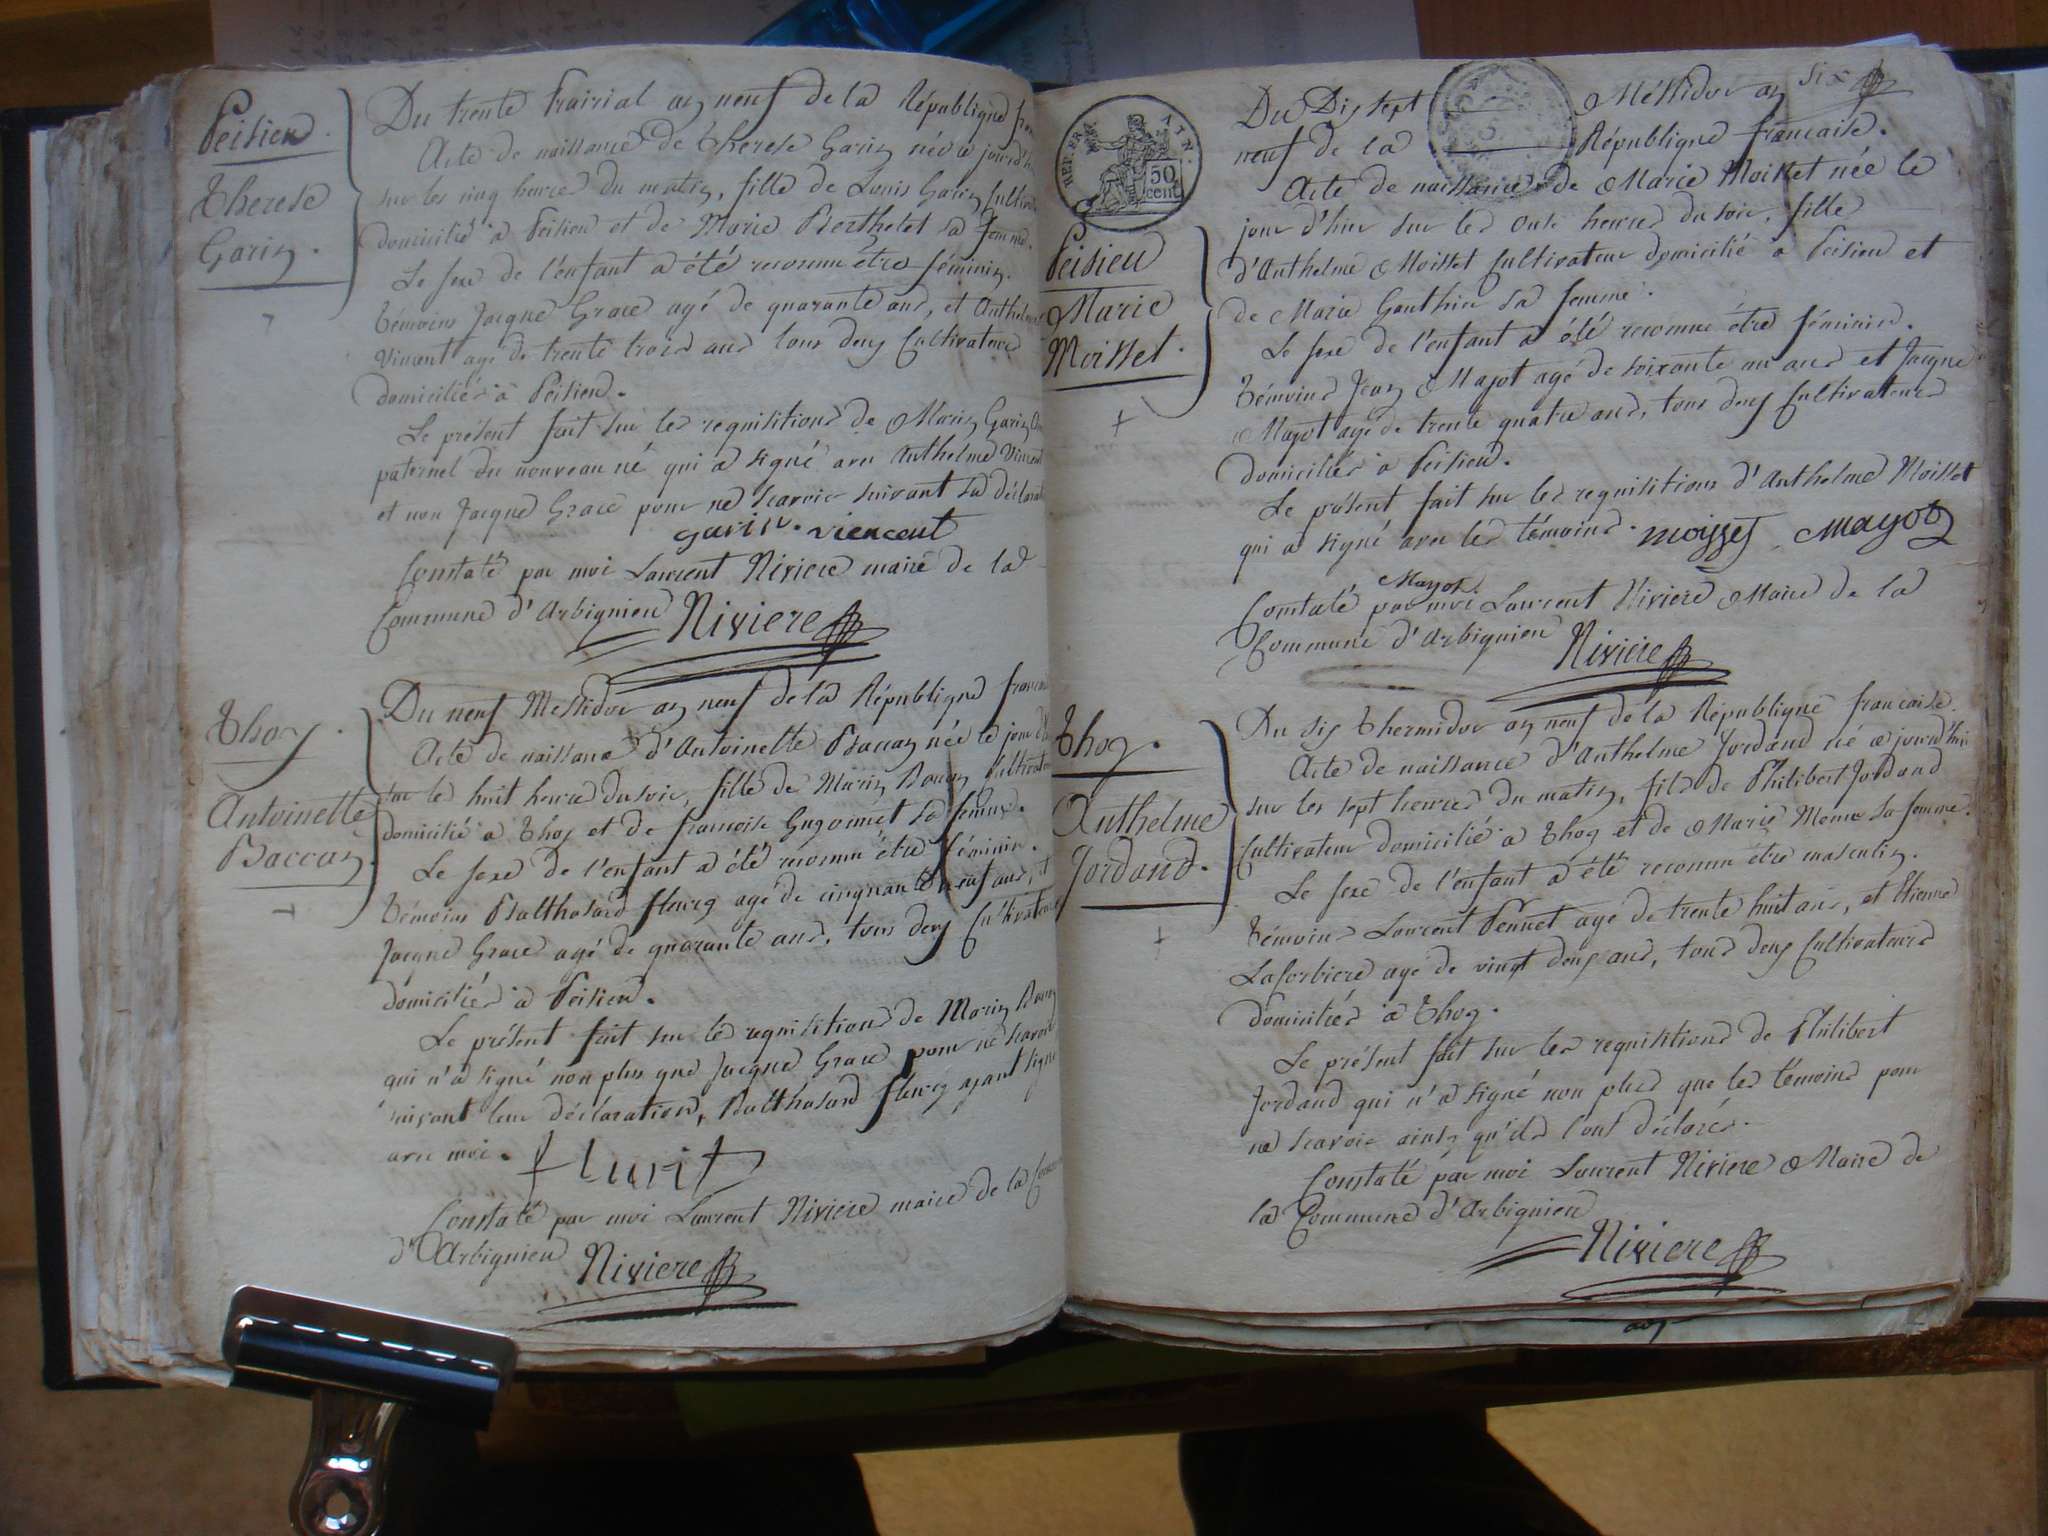 Peisieu.
Therese
Garin.
Du trente Prairial an neuf de la République
Acte de naissance de Therese Garin née ce jourd'hui
sur les cinq heures du matin, fille de Louis Garin Cultiv
domicilié à Peisieu et de Marie Berthelet sa femme.
Le sexe de l'enfant a été reconnu être féminin.
Témoins Jacque Grace agé de quarante ans, et Anthelme
Vincent agé de trente trois ans tous deux Cultivateurs
domiciliés à Peisieu.
Le présent fait sur les requisitions de Marin Garin
paternel du nouveau né qui a signé avec Anthelme Vincent
et non Jacque Grace pour ne scavoir suivant sa déclarat
garin. viencent
Constaté par moi Laurent Riviere maire de la
Commune d'Arbignieu Riviere
Thoy.
Antoinette
Baccaz.
Du neuf Messidor an neuf de la République franc
Acte de naissance d'Antoinette Baccaz née le jour d'hi
sur les huit heures du soir, fille de Marin Baccaz Cultivateur
domicilié à Thoy et de francoise Gugonnet sa femme.
Le sexe de l'enfant a été reconnu être féminin.
Témoins Balthasard fleury agé de cinquante neuf ans, et
Jacque Grace agé de quarante ans, tous deux Cultivateurs
domiciliés à Peisieu.
Le présent fait sur les requisitions de Marin Baccaz
qui n'a signé non plus que Jacque Grace pour ne scavoir
suivant leur déclaration, Balthasard fleury ayant signé
avec moi. flurit
Constaté par moi Laurent Riviere maire de la Comm
d'Arbignieu Riviere
REP. FRA. 50 cent
Du Dix sept Méssidor an six
neuf de la République francaise.
Peisieu
Marie
Moisset.
Acte de naissance de Marie Moisset née le
jour d'hier sur les onze heures du soir, fille
d'Anthelme Moisset Cultivateur domicilié à Peisieu et
de Marie Gauthier sa femme.
Le sexe de l'enfant a été reconnu être féminin.
Témoins Jean Mayot agé de soixante un ans et Jacque
Mayot agé de trente quatre ans, tous deux Cultivateurs
domiciliés à Peisieu.
Le présent fait sur les requisitions d'Anthelme Moisset
qui a signé avec les témoins. moisset Mayot
Mayot
Constaté par moi Laurent Riviere Maire de la
Commune d'Arbignieu Riviere
Thoy.
Anthelme
Jordand.
Du six Thermidor an neuf de la République francaise.
Acte de naissance d'Anthelme Jordand né ce jourd'hui
sur les sept heures du matin, fils de Philibert Jordand
Cultivateur domicilié à Thoy et de Marie sa femme.
Le sexe de l'enfant a été reconnu être masculin.
Témoins Laurent Pennet agé de trente huit ans, et Etienne
Lacorbiere agé de vingt deux ans, tous deux Cultivateurs
domiciliés à Thoy.
Le présent fait sur les requisitions de Philibert
Jordand qui n'a signé non plus que les témoins pour
ne scavoir ainsy qu'ils l'ont déclaré.
Constaté par moi Laurent Riviere Maire de
la Commune d'Arbignieu
Riviere